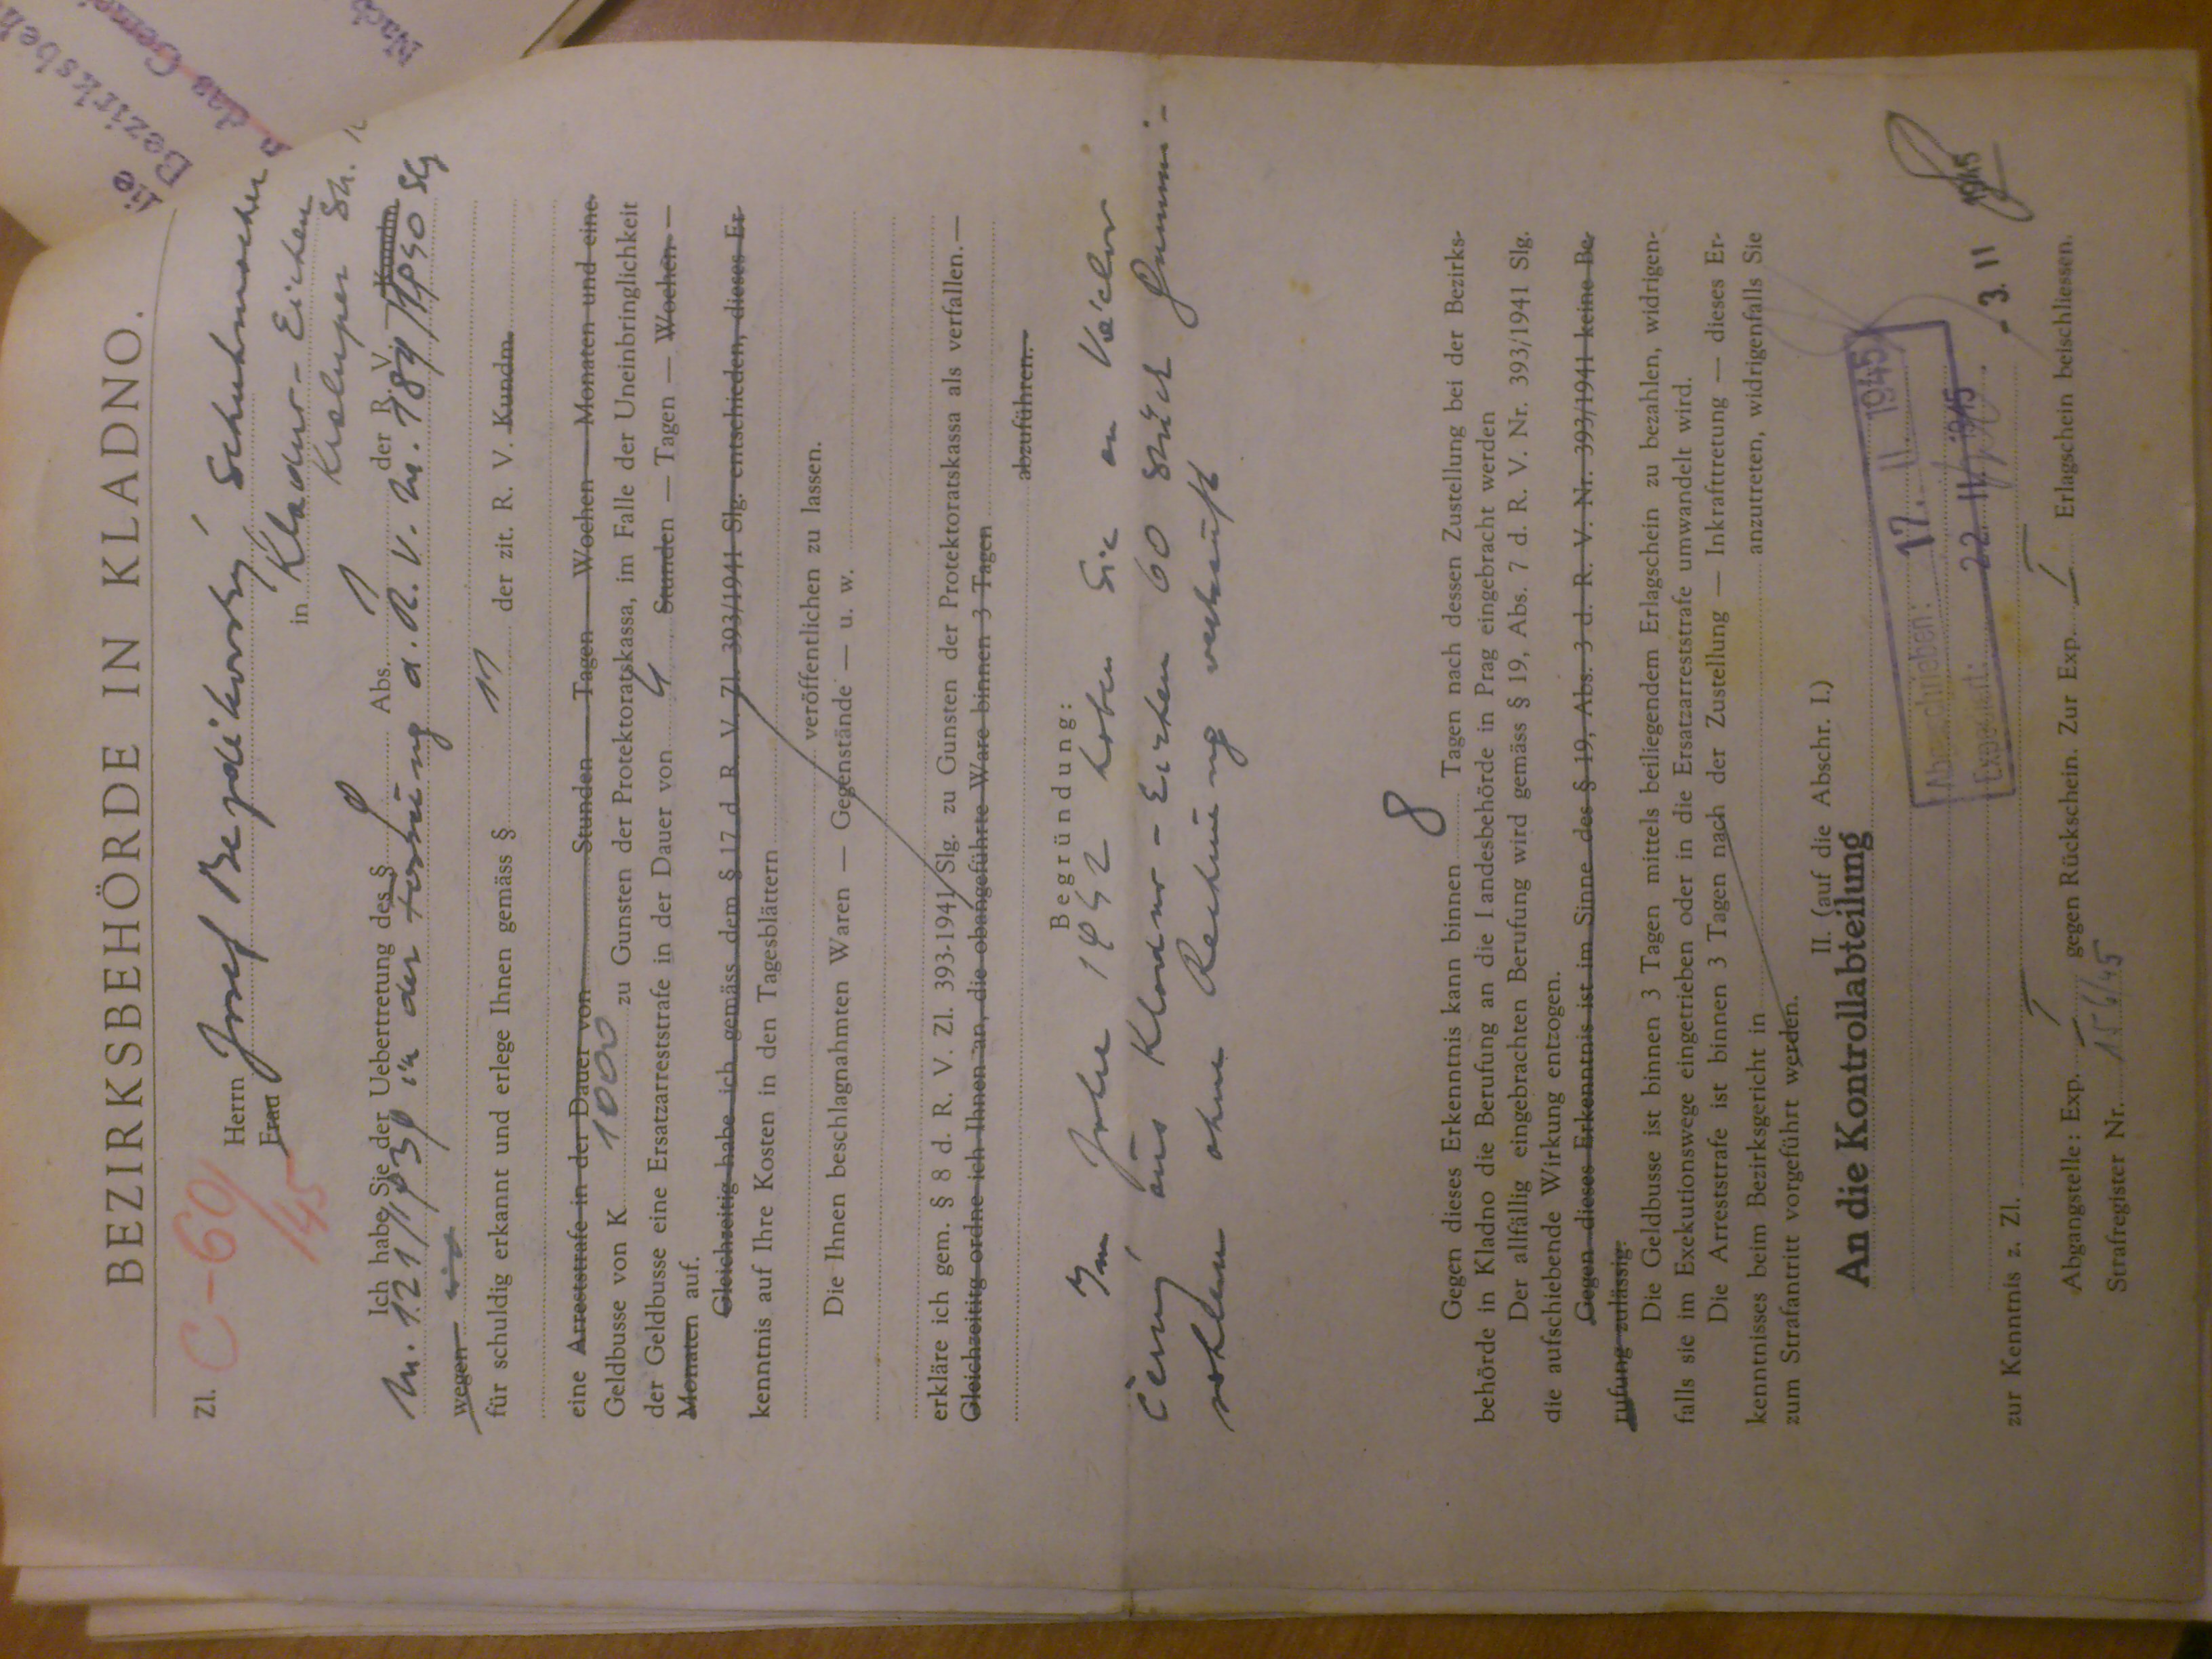 BEZIRKSBEHÖRDE IN KLADNO.
Zl. C-60/45
Herrn Josef Bezdíkovský, Schuhmacher
Frau
in Kladno - Eichen
Kraluper Str.
Ich habe Sie der Uebertretung des § 9 Abs. 1 der R. V. — Kundm
Nr. 121/1939 in der Fassung d. R. V. Nr. 189/1940 Slg
wegen
für schuldig erkannt und erlege Ihnen gemäss § 11 der zit. R. V. Kundm.
eine Arreststrafe in der Dauer von Stunden — Tagen — Wochen — Monaten und eine
Geldbusse von K 1000 zu Gunsten der Protektoratskassa, im Falle der Uneinbringlichkeit
der Geldbusse eine Ersatzarreststrafe in der Dauer von 4 Stunden — Tagen — Wochen —
Monaten auf.
Gleichzeitig habe ich gemäss dem § 17 d. R. V. Zl. 393/1941 Slg. entschieden, dieses Er-
kenntnis auf Ihre Kosten in den Tagesblättern
veröffentlichen zu lassen.
Die Ihnen beschlagnahmten Waren — Gegenstände — u. w.
erkläre ich gem. § 8 d. R. V. Zl. 393-1941 Slg. zu Gunsten der Protektoratskassa als verfallen.—
Gleichzeititg ordne ich Ihnen an, die obangeführte Ware binnen 3 Tagen
abzuführen.-
Begründung:
Im Jahre 1942 haben Sie an Václav
Černý aus Kladno - Eichen 60 Stück Gummi-
sohlen ohne Rechnung verkauft
Gegen dieses Erkenntnis kann binnen 8 Tagen nach dessen Zustellung bei der Bezirks-
behörde in Kladno die Berufung an die Landesbehörde in Prag eingebracht werden
Der allfällig eingebrachten Berufung wird gemäss § 19, Abs. 7 d. R. V. Nr. 393/1941 Slg.
die aufschiebende Wirkung entzogen.
Gegen dieses Erkenntnis ist im Sinne des § 19, Abs. 3 d. R. V. Nr. 393/1941 keine Be-
rufung zulässig.
Die Geldbusse ist binnen 3 Tagen mittels beiliegendem Erlagschein zu bezahlen, widrigen-
falls sie im Exekutionswege eingetrieben oder in die Ersatzarreststrafe umwandelt wird.
Die Arreststrafe ist binnen 3 Tagen nach der Zustellung — Inkrafttretung — dieses Er-
kenntnisses beim Bezirksgericht in anzutreten, widrigenfalls Sie
zum Strafantritt vorgeführt werden.
II. (auf die Abschr. I.)
An die Kontrollabteilung
Abgeschrieben: 17. II. 1945
Expediert: 22. II. 1945
- 3. II 1945
zur Kenntnis z. Zl.
Abgangstelle: Exp. I gegen Rückschein. Zur Exp. I Erlagschein beischliessen.
Strafregister Nr. 156/45
die
Bezirksbeh
das
Nach